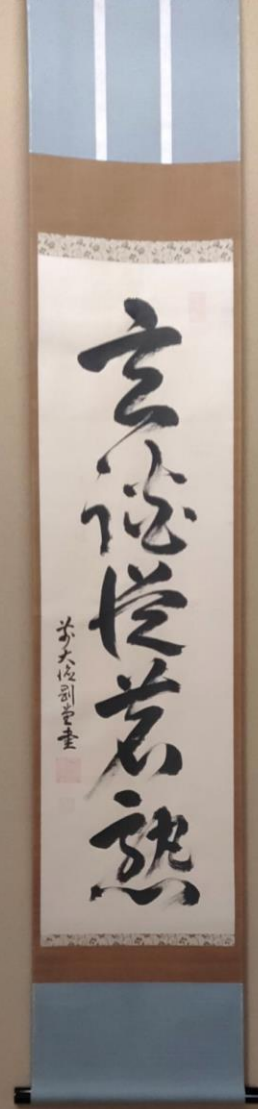 玄談従茗熟
前大徳剛堂書